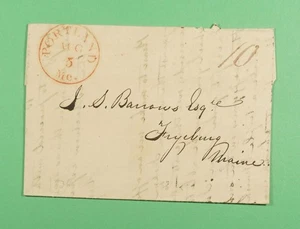 PORTLAND
5
Me.
10
J. S. Barrows Esqr
Fryeburg
Maine